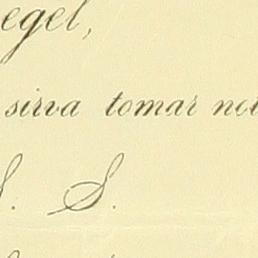 egel,
sirva tomar not
S. S.